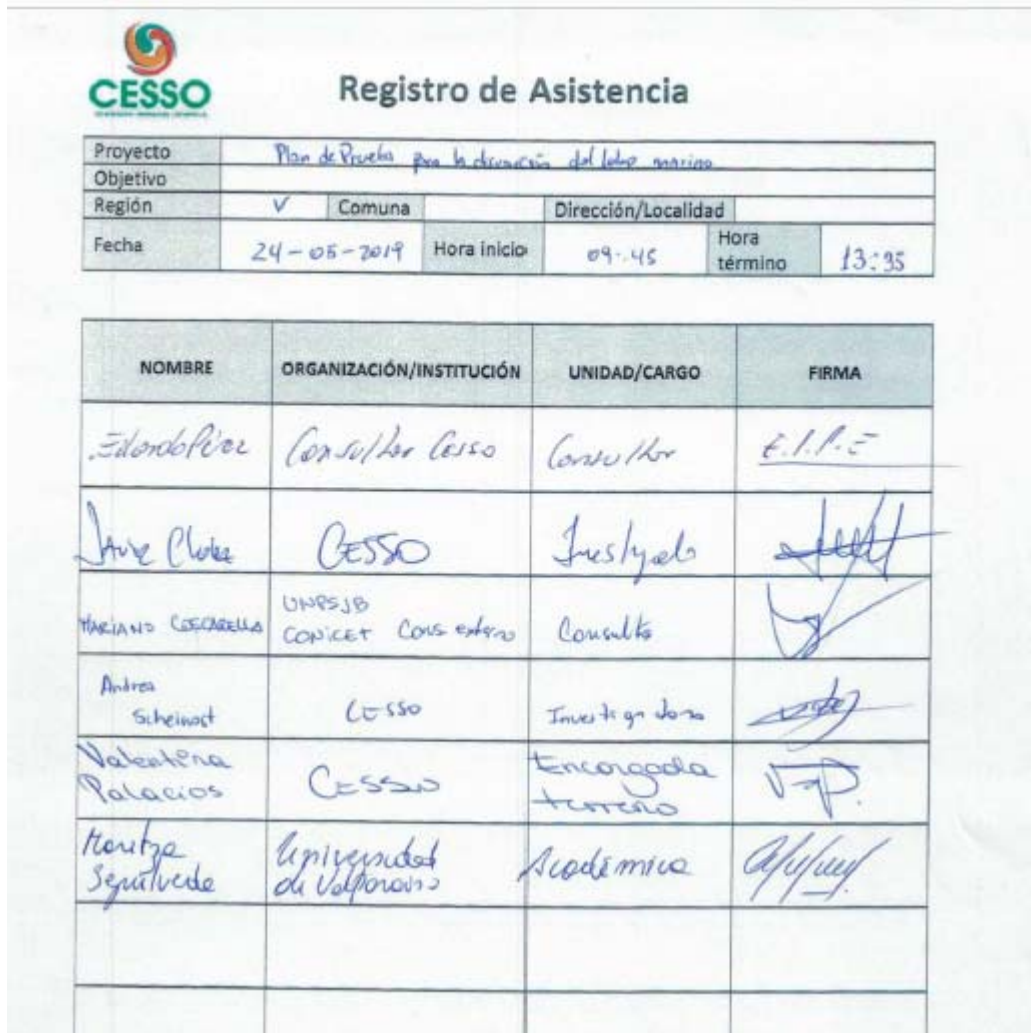 CESSO
Registro de Asistencia
Proyecto Plan de Prueba para la disuasión del lobo marino
Objetivo
Región V Comuna Dirección/Localidad
Fecha 24-05-2019 Hora inicio 09:45 Hora término 13:35
NOMBRE ORGANIZACIÓN/INSTITUCIÓN UNIDAD/CARGO FIRMA
Eduardo Pérez Consultor Cesso Consultor E.I.P.E
CESSO
MARIANO COSCARELLA UNPSJB CONICET Cons externo Consulto
Andrea Scheinost CESSO Investigadora
Valentina Palacios CESSO Encargada terreno VSP.
Maritza Sepúlveda Universidad de Valparaíso Académica